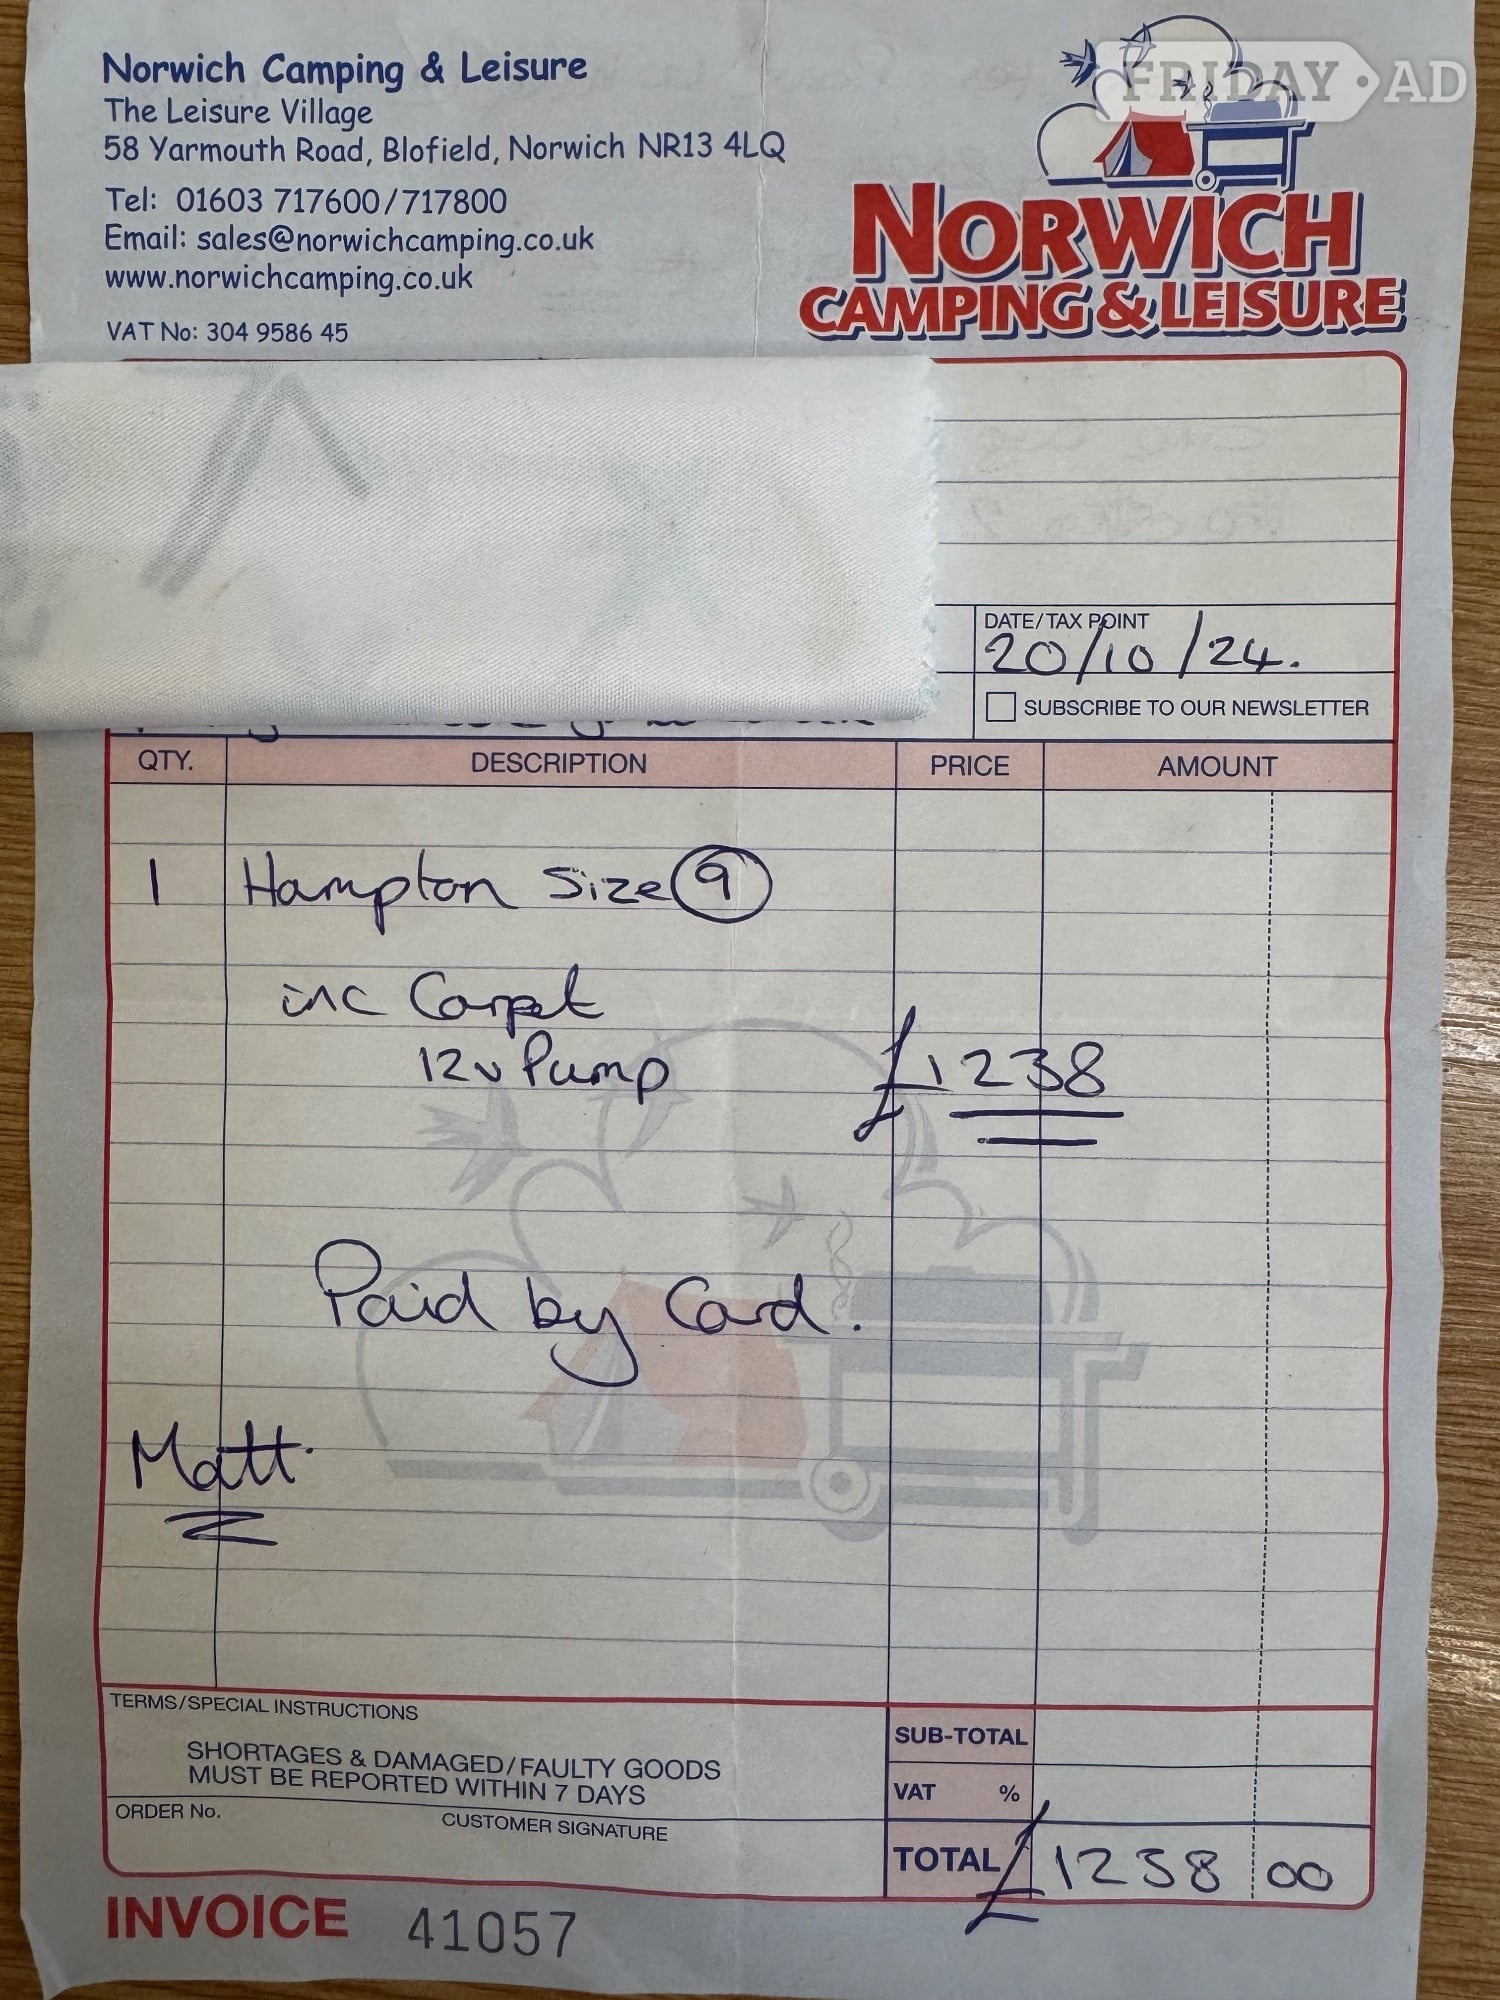 Norwich Camping & Leisure
The Leisure Village
58 Yarmouth Road, Blofield, Norwich NR13 4LQ
Tel: 01603 717600/717800
Email: sales@norwichcamping.co.uk
www.norwichcamping.co.uk
VAT No: 304 9586 45
FRIDAY-AD
NORWICH
CAMPING & LEISURE
DATE/TAX POINT
20/10/24.
SUBSCRIBE TO OUR NEWSLETTER
QTY. DESCRIPTION PRICE AMOUNT
1 Hampton Size 9
inc Carpet
12v Pump £1238
Paid by Card.
Matt
TERMS/SPECIAL INSTRUCTIONS
SHORTAGES & DAMAGED/FAULTY GOODS
MUST BE REPORTED WITHIN 7 DAYS
ORDER No. CUSTOMER SIGNATURE
SUB-TOTAL
VAT %
TOTAL £1238 00
INVOICE 41057